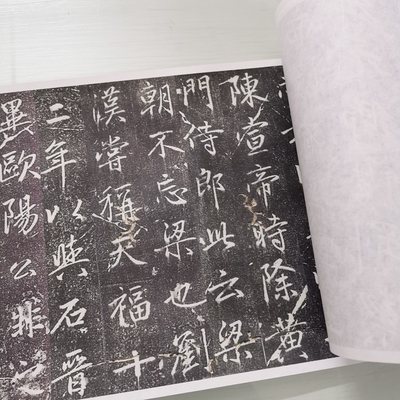 陳宣帝時除黄
門侍郎此云梁
朝不忘梁也劉
漢嘗稱天福十
二年以與石晋
異歐陽公非